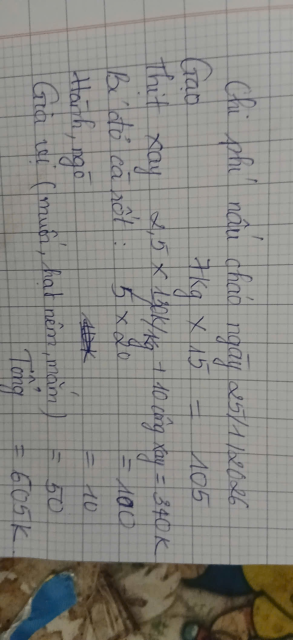 Chi phí nấu cháo ngày 25/1/2026
Gạo 7kg x 15 = 105
Thịt xay 2,5 x 130k/kg + 10 công xay = 340k
Bí đỏ cà rốt : 5 x 20 = 100
Hành, ngò = 10
Gia vị (muối, hạt nêm, mắm) = 50
Tổng = 605k